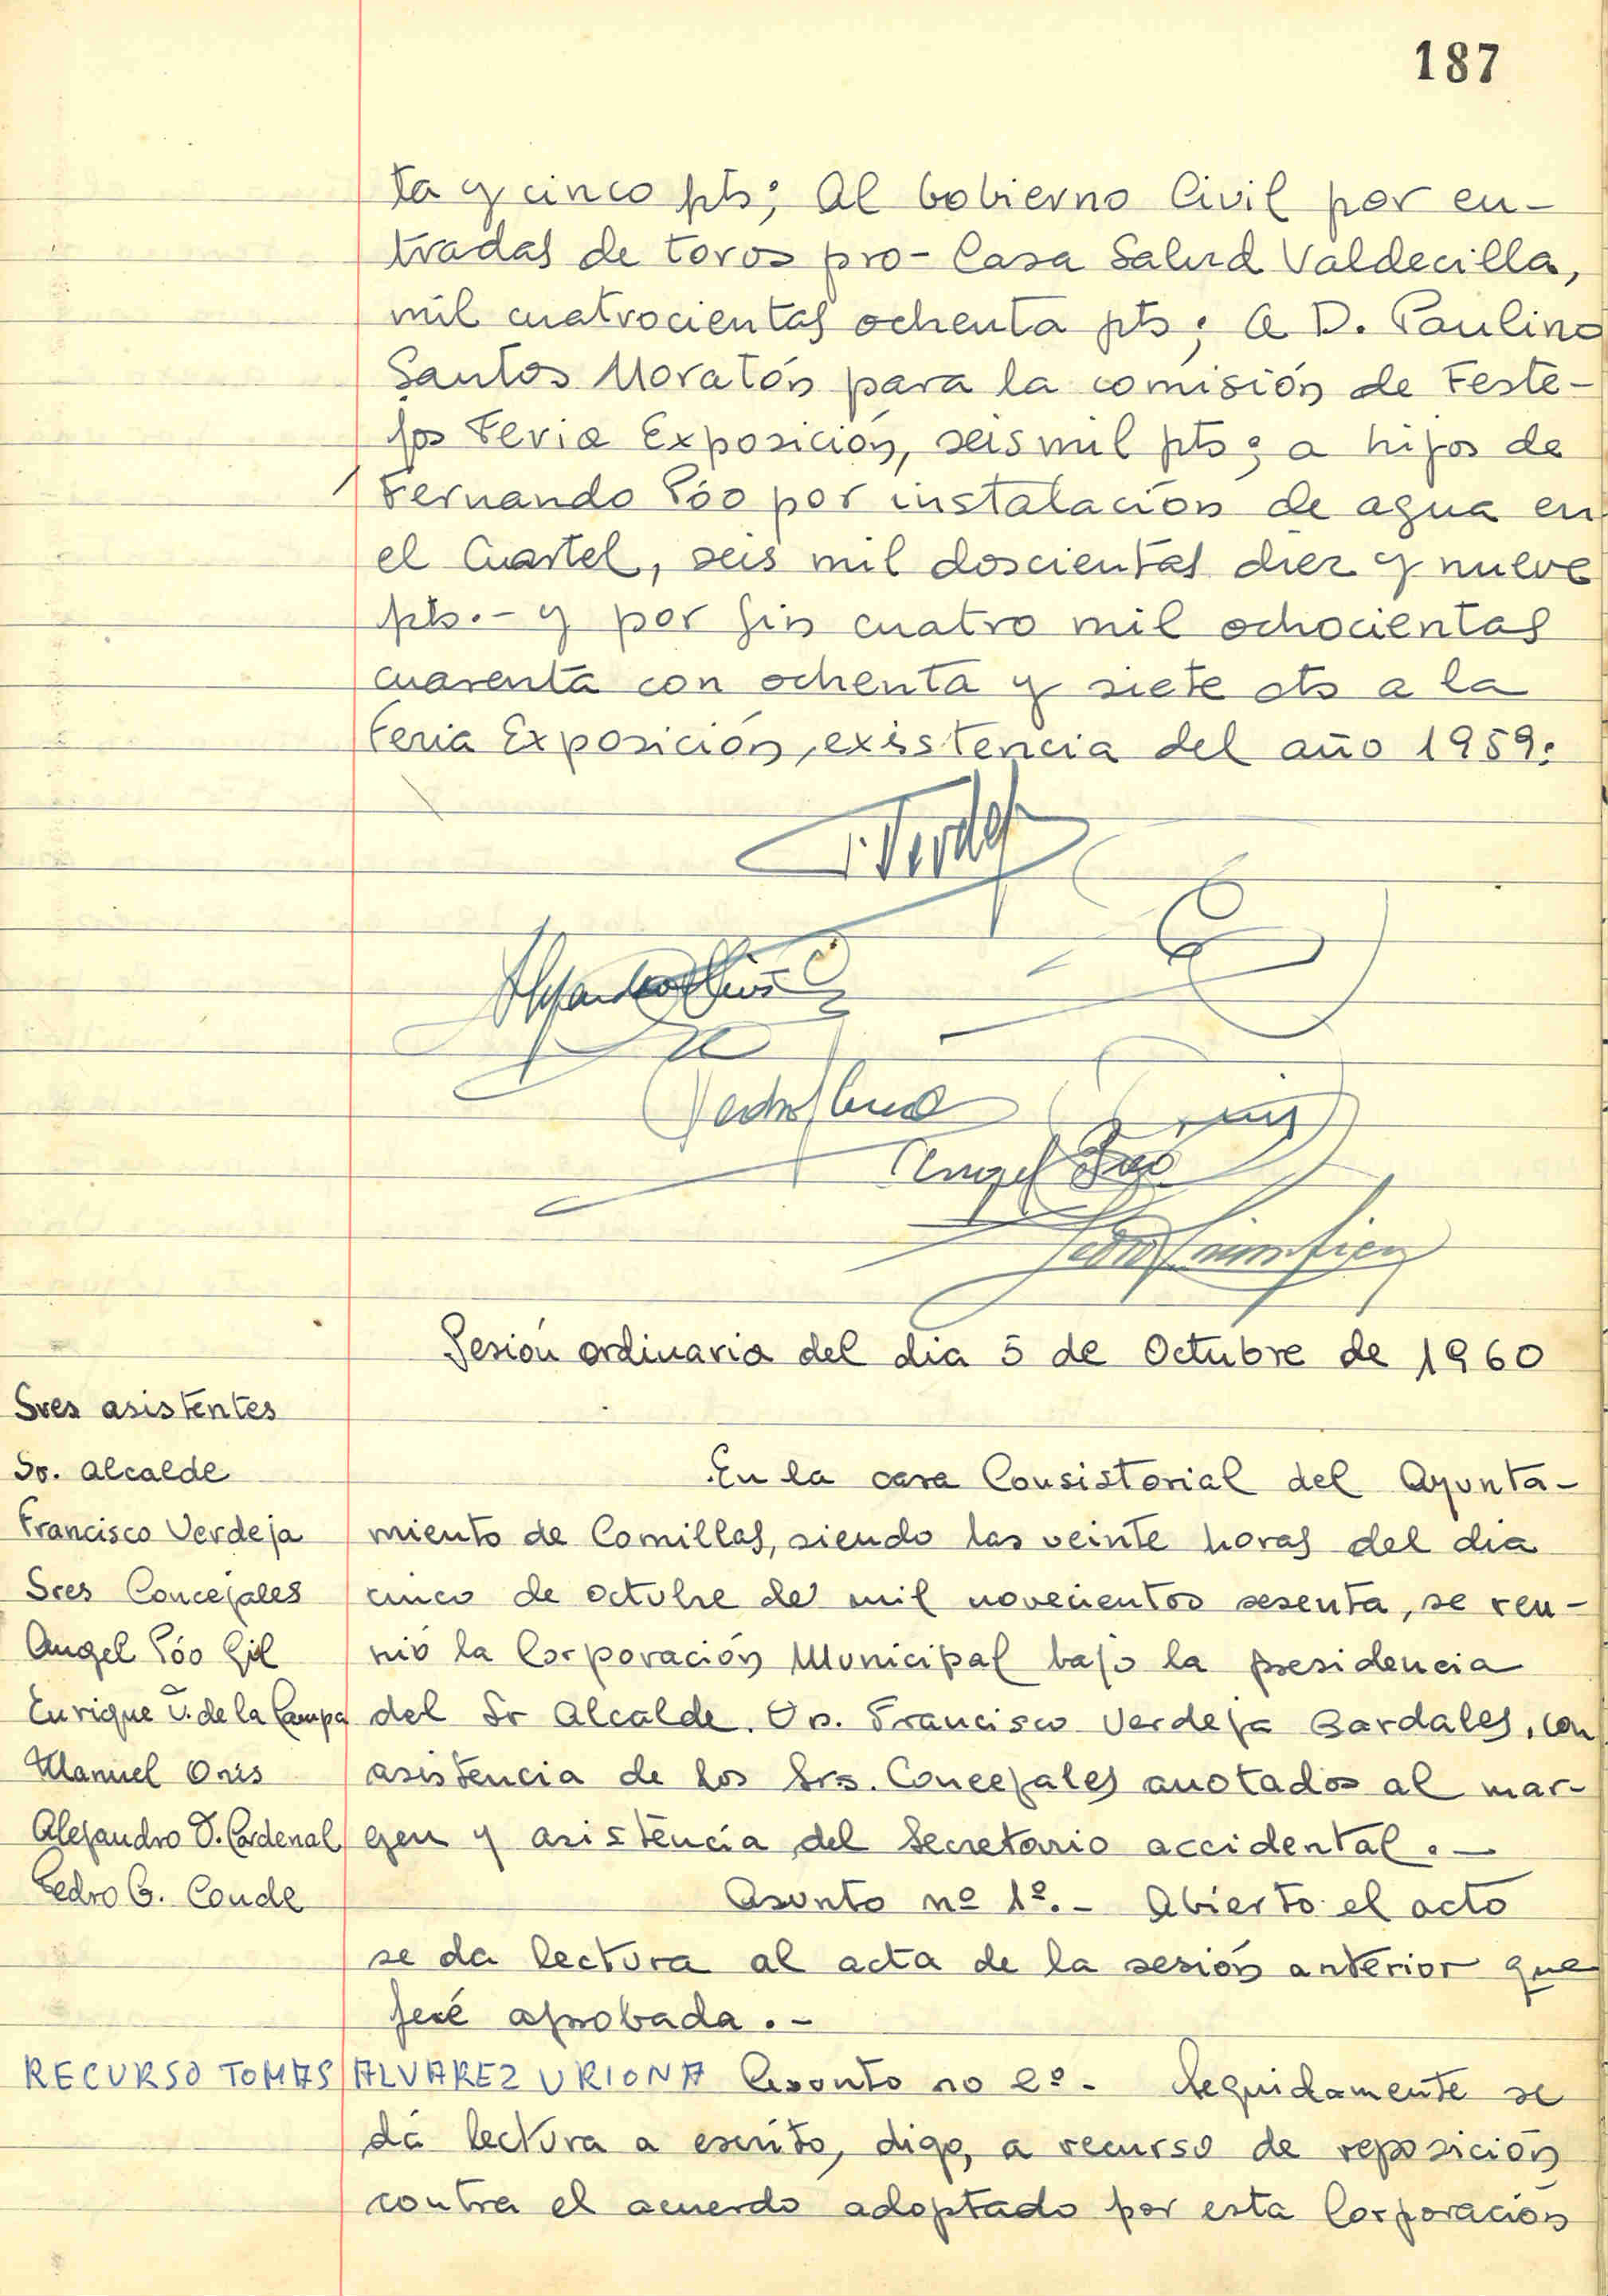 187
ta y cinco pts; Al Gobierno Civil por en-
tradas de toros pro- Casa Salud Valdecilla,
mil cuatrocientas ochenta pts; a D. Paulino
Santos Moratón para la comisión de Feste-
jos Feria Exposición, seis mil pts; a hijos de
Fernando Póo por instalación de agua en
el Cuartel, seis mil doscientas diez y nueve
pts.- y por fin cuatro mil ochocientas
cuarenta con ochenta y siete cts a la
Feria Exposición, existencia del año 1959.
Angel Póo
Sesión ordinaria del dia 5 de Octubre de 1960
Sres asistentes
Sr. Alcalde
Francisco Verdeja
Sres Concejales
Angel Póo Gil
Enrique V. de la Campa
Manuel Oris
Alejandro D. Cardenal
Pedro G. Conde
En la casa Consistorial del Ayunta-
miento de Comillas, siendo las veinte horas del dia
cinco de octubre de mil novecientos sesenta, se reu-
nió la Corporación Municipal bajo la presidencia
del Sr Alcalde. Dn. Francisco Verdeja Bardales, con
asistencia de los Srs. Concejales anotados al mar-
gen y asistencia del Secretario accidental.-
Asunto nº 1º.- Abierto el acto
se da lectura al acta de la sesión anterior que
fué aprobada.-
RECURSO TOMAS ALVAREZ URIONA Asunto no 2º- Seguidamente se
dá lectura a escrito, digo, a recurso de reposición
contra el acuerdo adoptado por esta Corporación